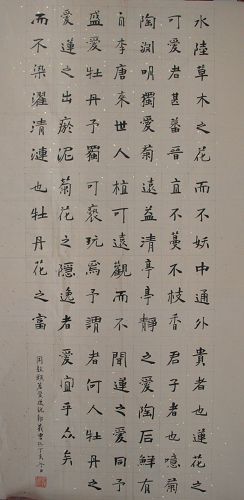 水陸草木之花
可愛者甚蕃晉
陶淵明獨愛菊
自李唐來世人
盛愛牡丹予獨
愛蓮之出淤泥
而不染濯清漣
而不妖中通外
直不蔓不枝香
遠益清亭亭靜
植可遠觀而不
可褻玩焉予謂
菊花之隱逸者
也牡丹花之富
貴者也蓮花之
君子者也噫菊
之愛陶后鮮有
聞蓮之愛同予
者何人牡丹之
愛宜乎眾矣
周敦頤愛蓮說